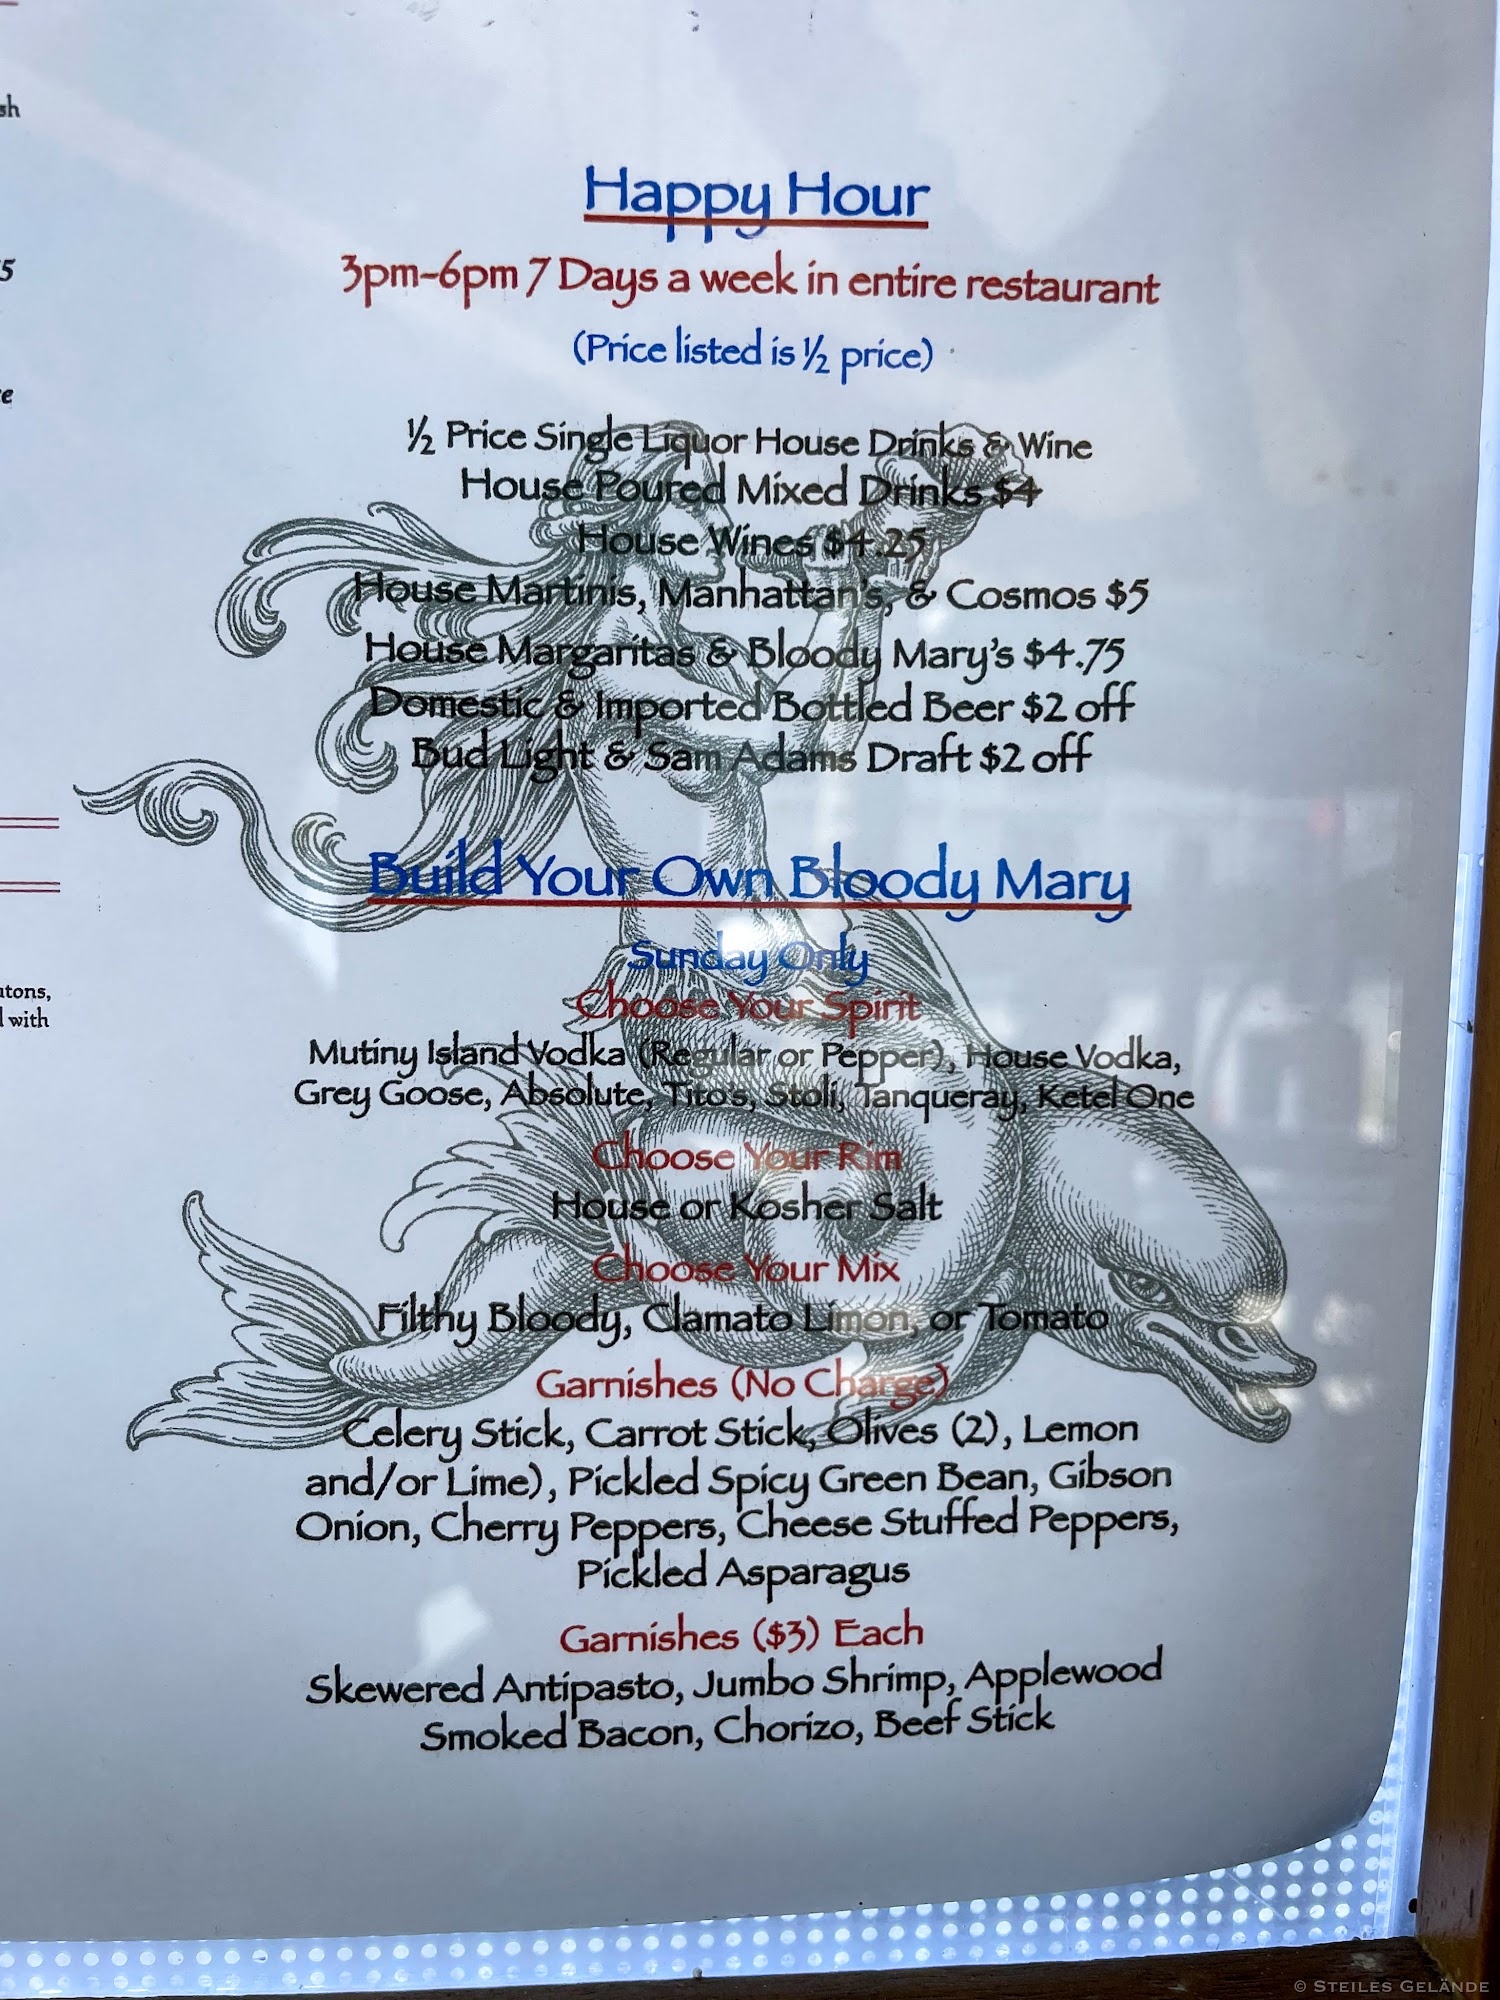 sh
5
e
utons,
d with
Happy Hour
3pm-6pm 7 Days a week in entire restaurant
(Price listed is ½ price)
½ Price Single Liquor House Drinks & Wine
House Poured Mixed Drinks $4
House Wines $4.25
House Martinis, Manhattan's, & Cosmos $5
House Margaritas & Bloody Mary's $4.75
Domestic & Imported Bottled Beer $2 off
Bud Light & Sam Adams Draft $2 off
Build Your Own Bloody Mary
Sunday Only
Choose Your Spirit
Mutiny Island Vodka (Regular or Pepper), House Vodka,
Grey Goose, Absolute, Tito's, Stoli, Tanqueray, Ketel One
Choose Your Rim
House or Kosher Salt
Choose Your Mix
Filthy Bloody, Clamato Limon, or Tomato
Garnishes (No Charge)
Celery Stick, Carrot Stick, Olives (2), Lemon
and/or Lime), Pickled Spicy Green Bean, Gibson
Onion, Cherry Peppers, Cheese Stuffed Peppers,
Pickled Asparagus
Garnishes ($3) Each
Skewered Antipasto, Jumbo Shrimp, Applewood
Smoked Bacon, Chorizo, Beef Stick
© STEILES GELÄNDE